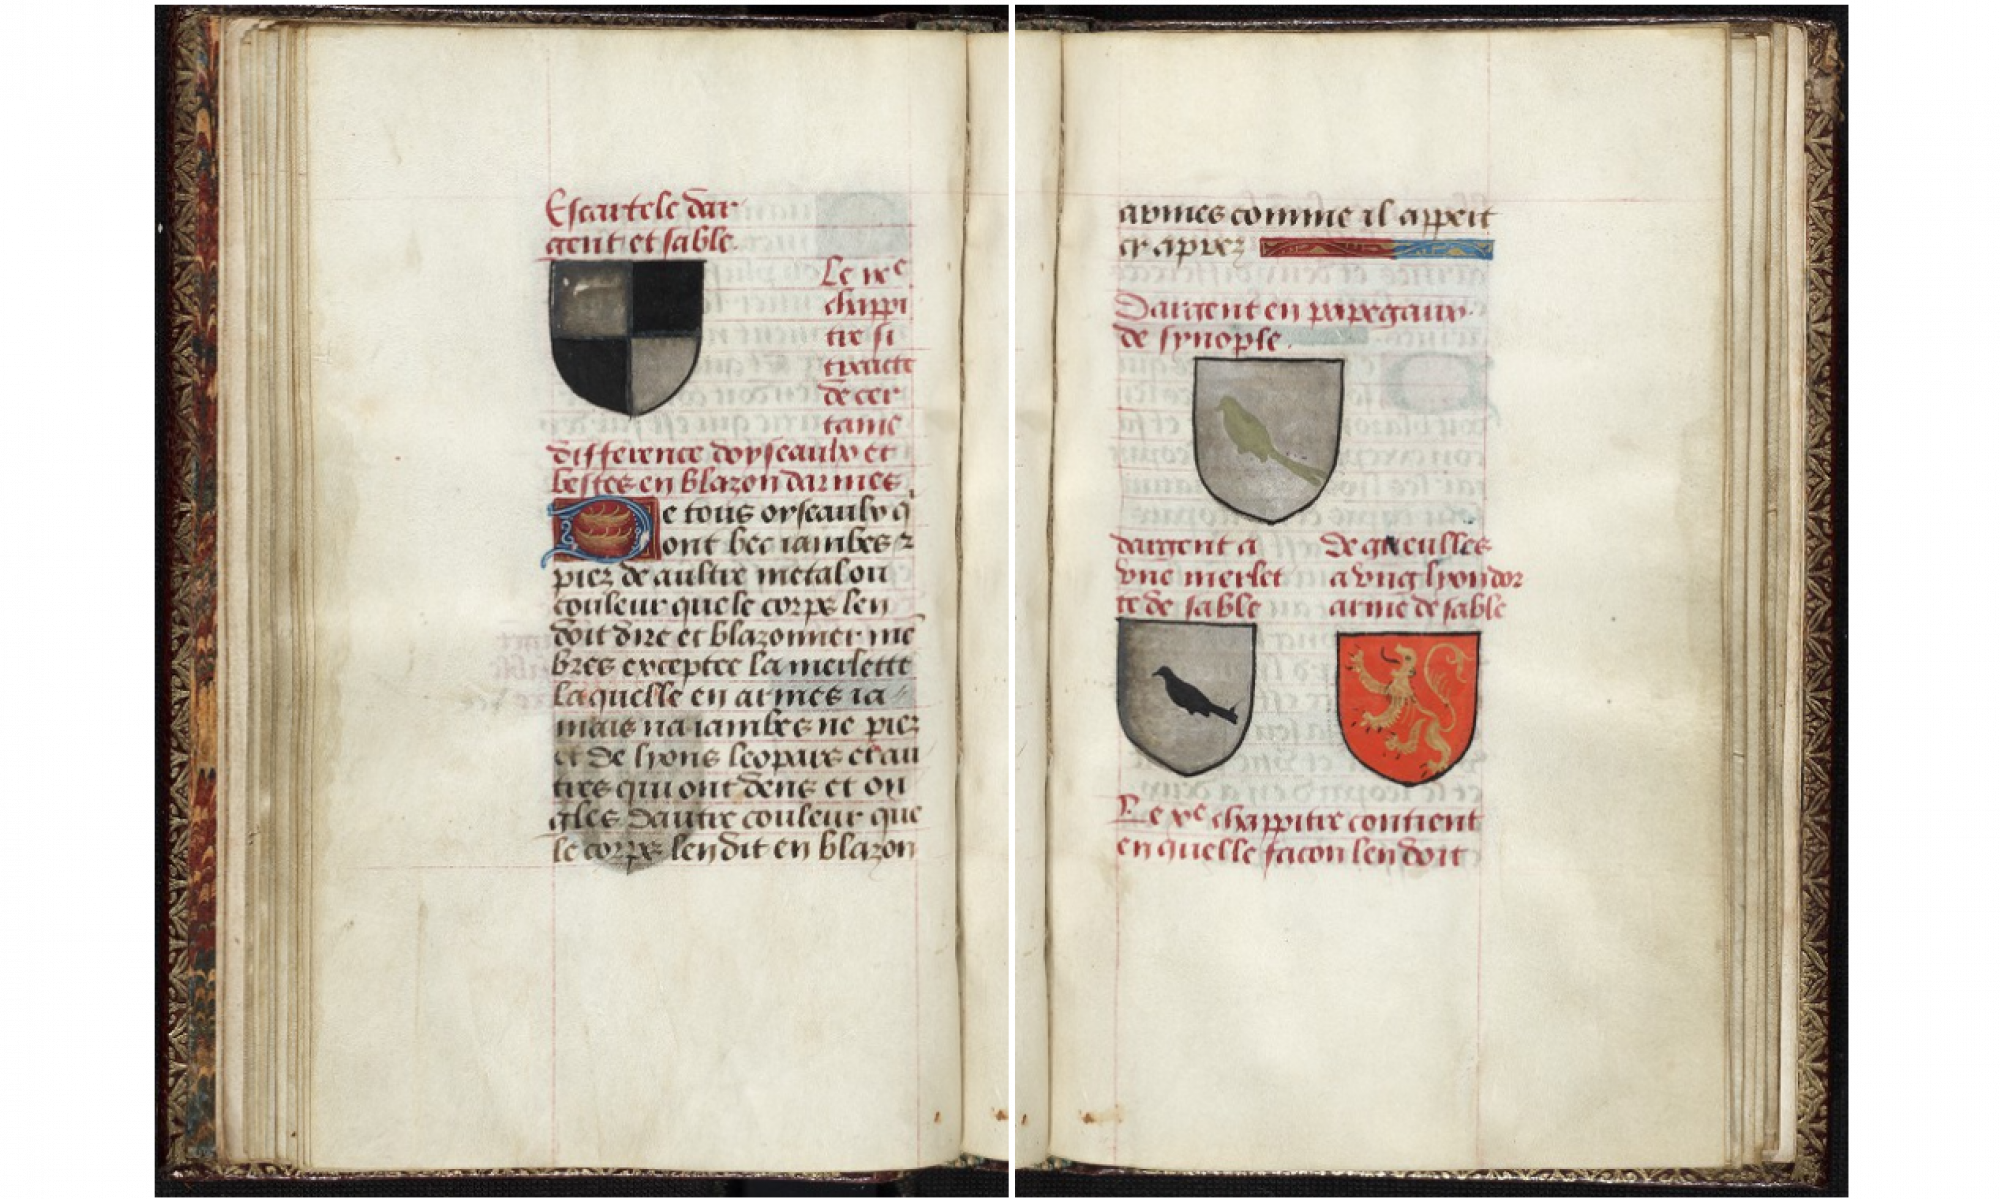 Escartele dar
gent et sable
Le ixe
chappi
tre si
traicte
de cer
taine
difference doyseaulx et
bestes en blazon darmes
De tous oyseaulx q̄
ont bec iambes ⁊
piez de aultre metal ou
couleur que le corps len
doit dire et blazonner mē
bres exceptee la merlette
laquelle en armes ia
mais na iambes ne piez
et de lyons leopars et au
tres qui ont dens et on
gles dautre couleur que
le corps len dit en blazon
armes comme il appert
cy aprez
Dargent en papegaux
de synople
dargent a
vne merlet
te de sable
de gueulles
a vng lyon dor
arme de sable
Le xe chappitre contient
en quelle facon len doit